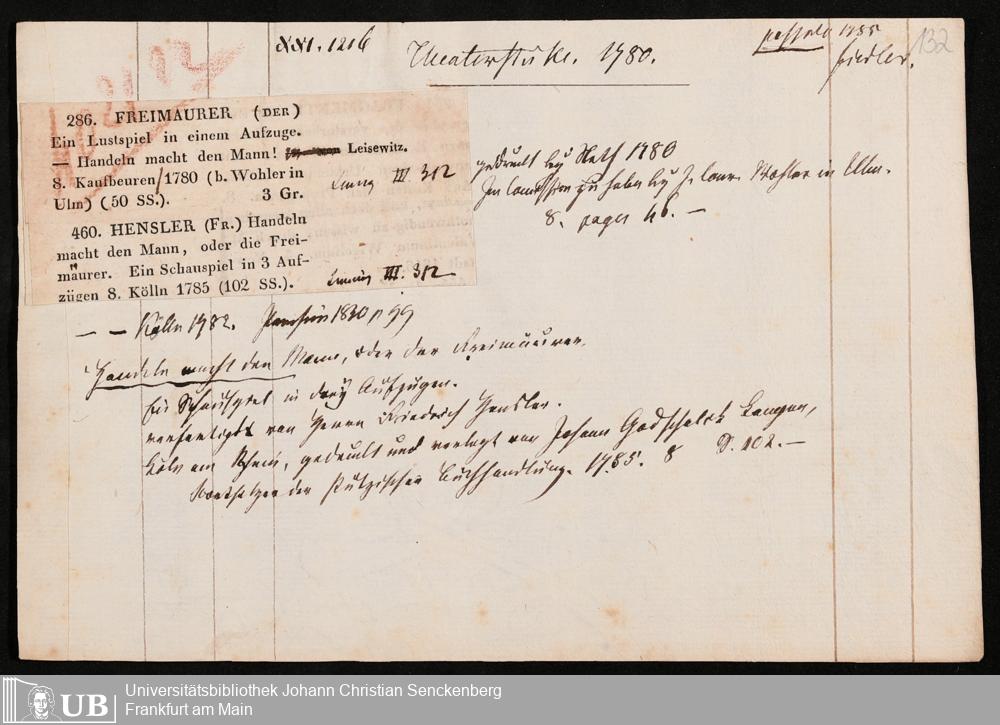 XXI. 1216
Theaterstücke. 1780.
1785
132
286. FREIMAURER (DER)
Ein Lustspiel in einem Aufzuge.
— Handeln macht den Mann! Leisewitz.
8. Kaufbeuren/1780 (b. Wohler in
Ulm) (50 SS.). 3 Gr.
III 312
gedruckt bey Neth 1780
In Commission zu haben bey Wohler in Ulm.
8. pages 46. —
460. HENSLER (FR.) Handeln
macht den Mann, oder die Frei-
mäurer. Ein Schauspiel in 3 Auf-
zügen 8. Kölln 1785 (102 SS.).
III. 312
— — Kölln 1782. 1830 p 99
Handeln macht den Mann, oder der Freimäurer.
Ein Schauspiel in drey Aufzügen.
verfertiget von Herrn Friedrich Hensler.
Köln am Rhein, gedruckt und verlegt von Johann Godschalck Langen,
der Pützischen Buchhandlung. 1785. 8 S. 102. —
UB
Universitätsbibliothek Johann Christian Senckenberg
Frankfurt am Main